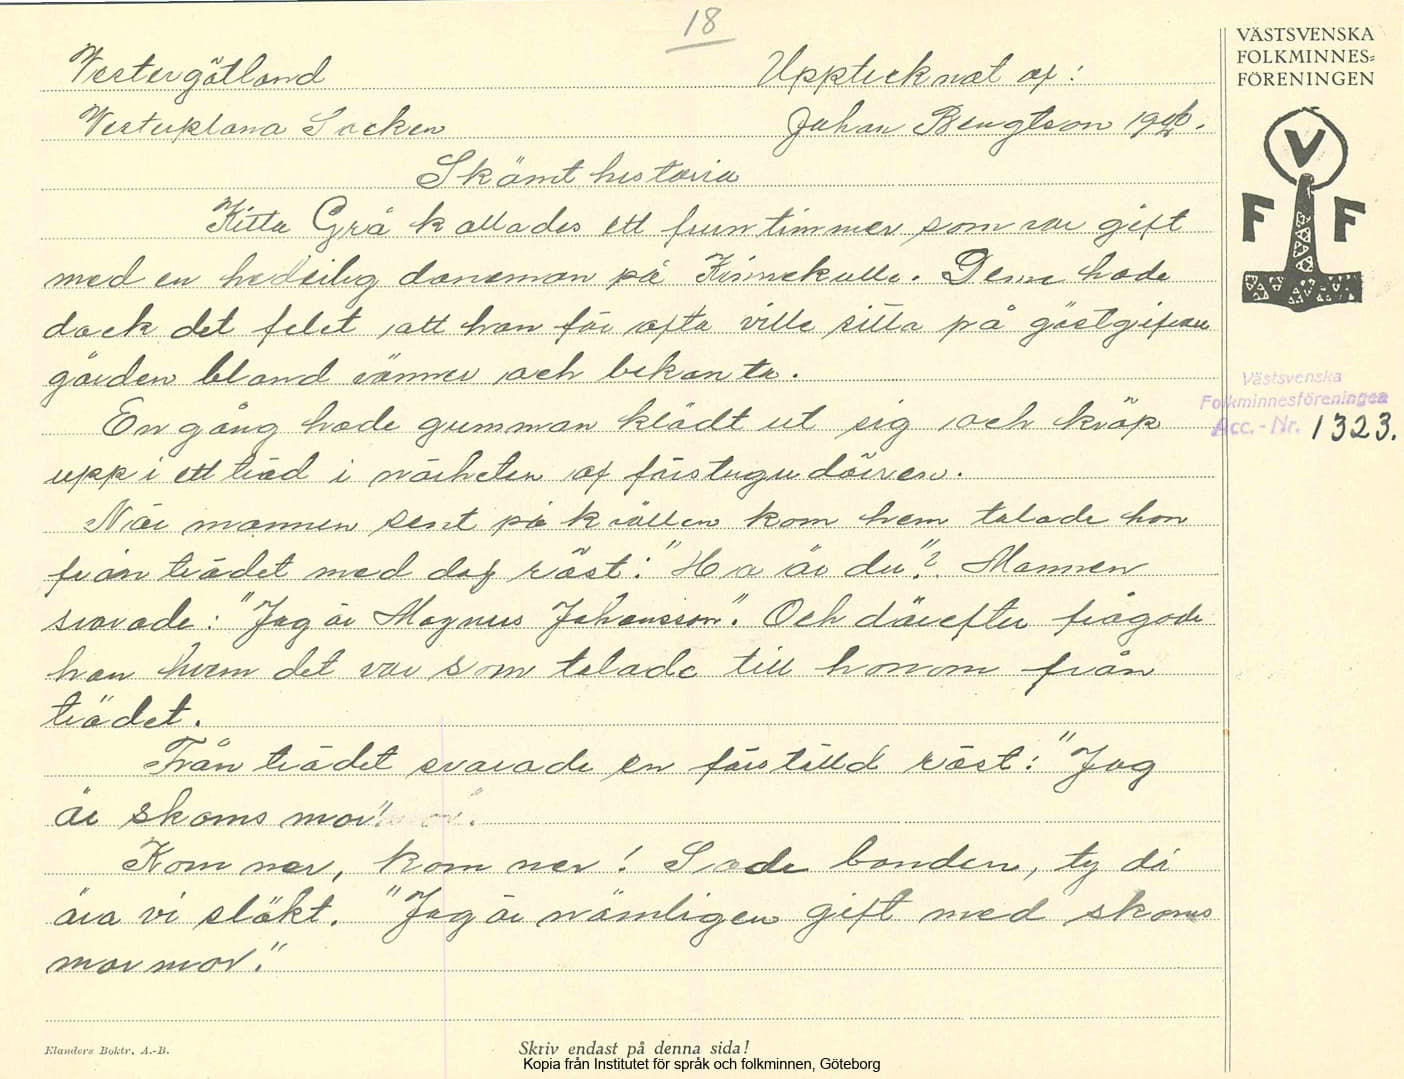 18
Westergötland
Upptecknat af:
Westerplana Socken
Johan Bengtson 1926.
Skämthistoria
Kitta Grå kallades ett fruntimmer som var gift
med en hederlig daneman på Kinnekulle. Denne hade
dock det felet att han för ofta ville sitta på gästgifvare
gården bland vänner och bekanta.
En gång hade gumman klädt ut sig och kröp
upp i ett träd i närheten af förstugudörren.
När mannen sent på kvällen kom hem talade hon
från trädet med dof röst: "Ha är du"? Mannen
svarade: "Jag är Magnus Johansson". Och därefter frågade
han hvem det var som talade till honom från
trädet.
Från trädet svarade en förställd röst: "Jag
är skams mor".
Kom ner, kom ner! Sade bonden, ty då
ära vi släkt. "Jag är nämligen gift med skams
mormor."
VÄSTSVENSKA
FOLKMINNES=
FÖRENINGEN
V
F F
Västsvenska
Folkminnesföreningen
Acc.-Nr. 1323.
Elanders Boktr. A.-B.
Skriv endast på denna sida!
Kopia från Institutet för språk och folkminnen, Göteborg